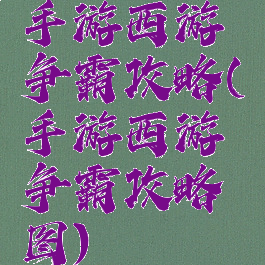 手游西游
争霸攻略(
手游西游
争霸攻略
图)